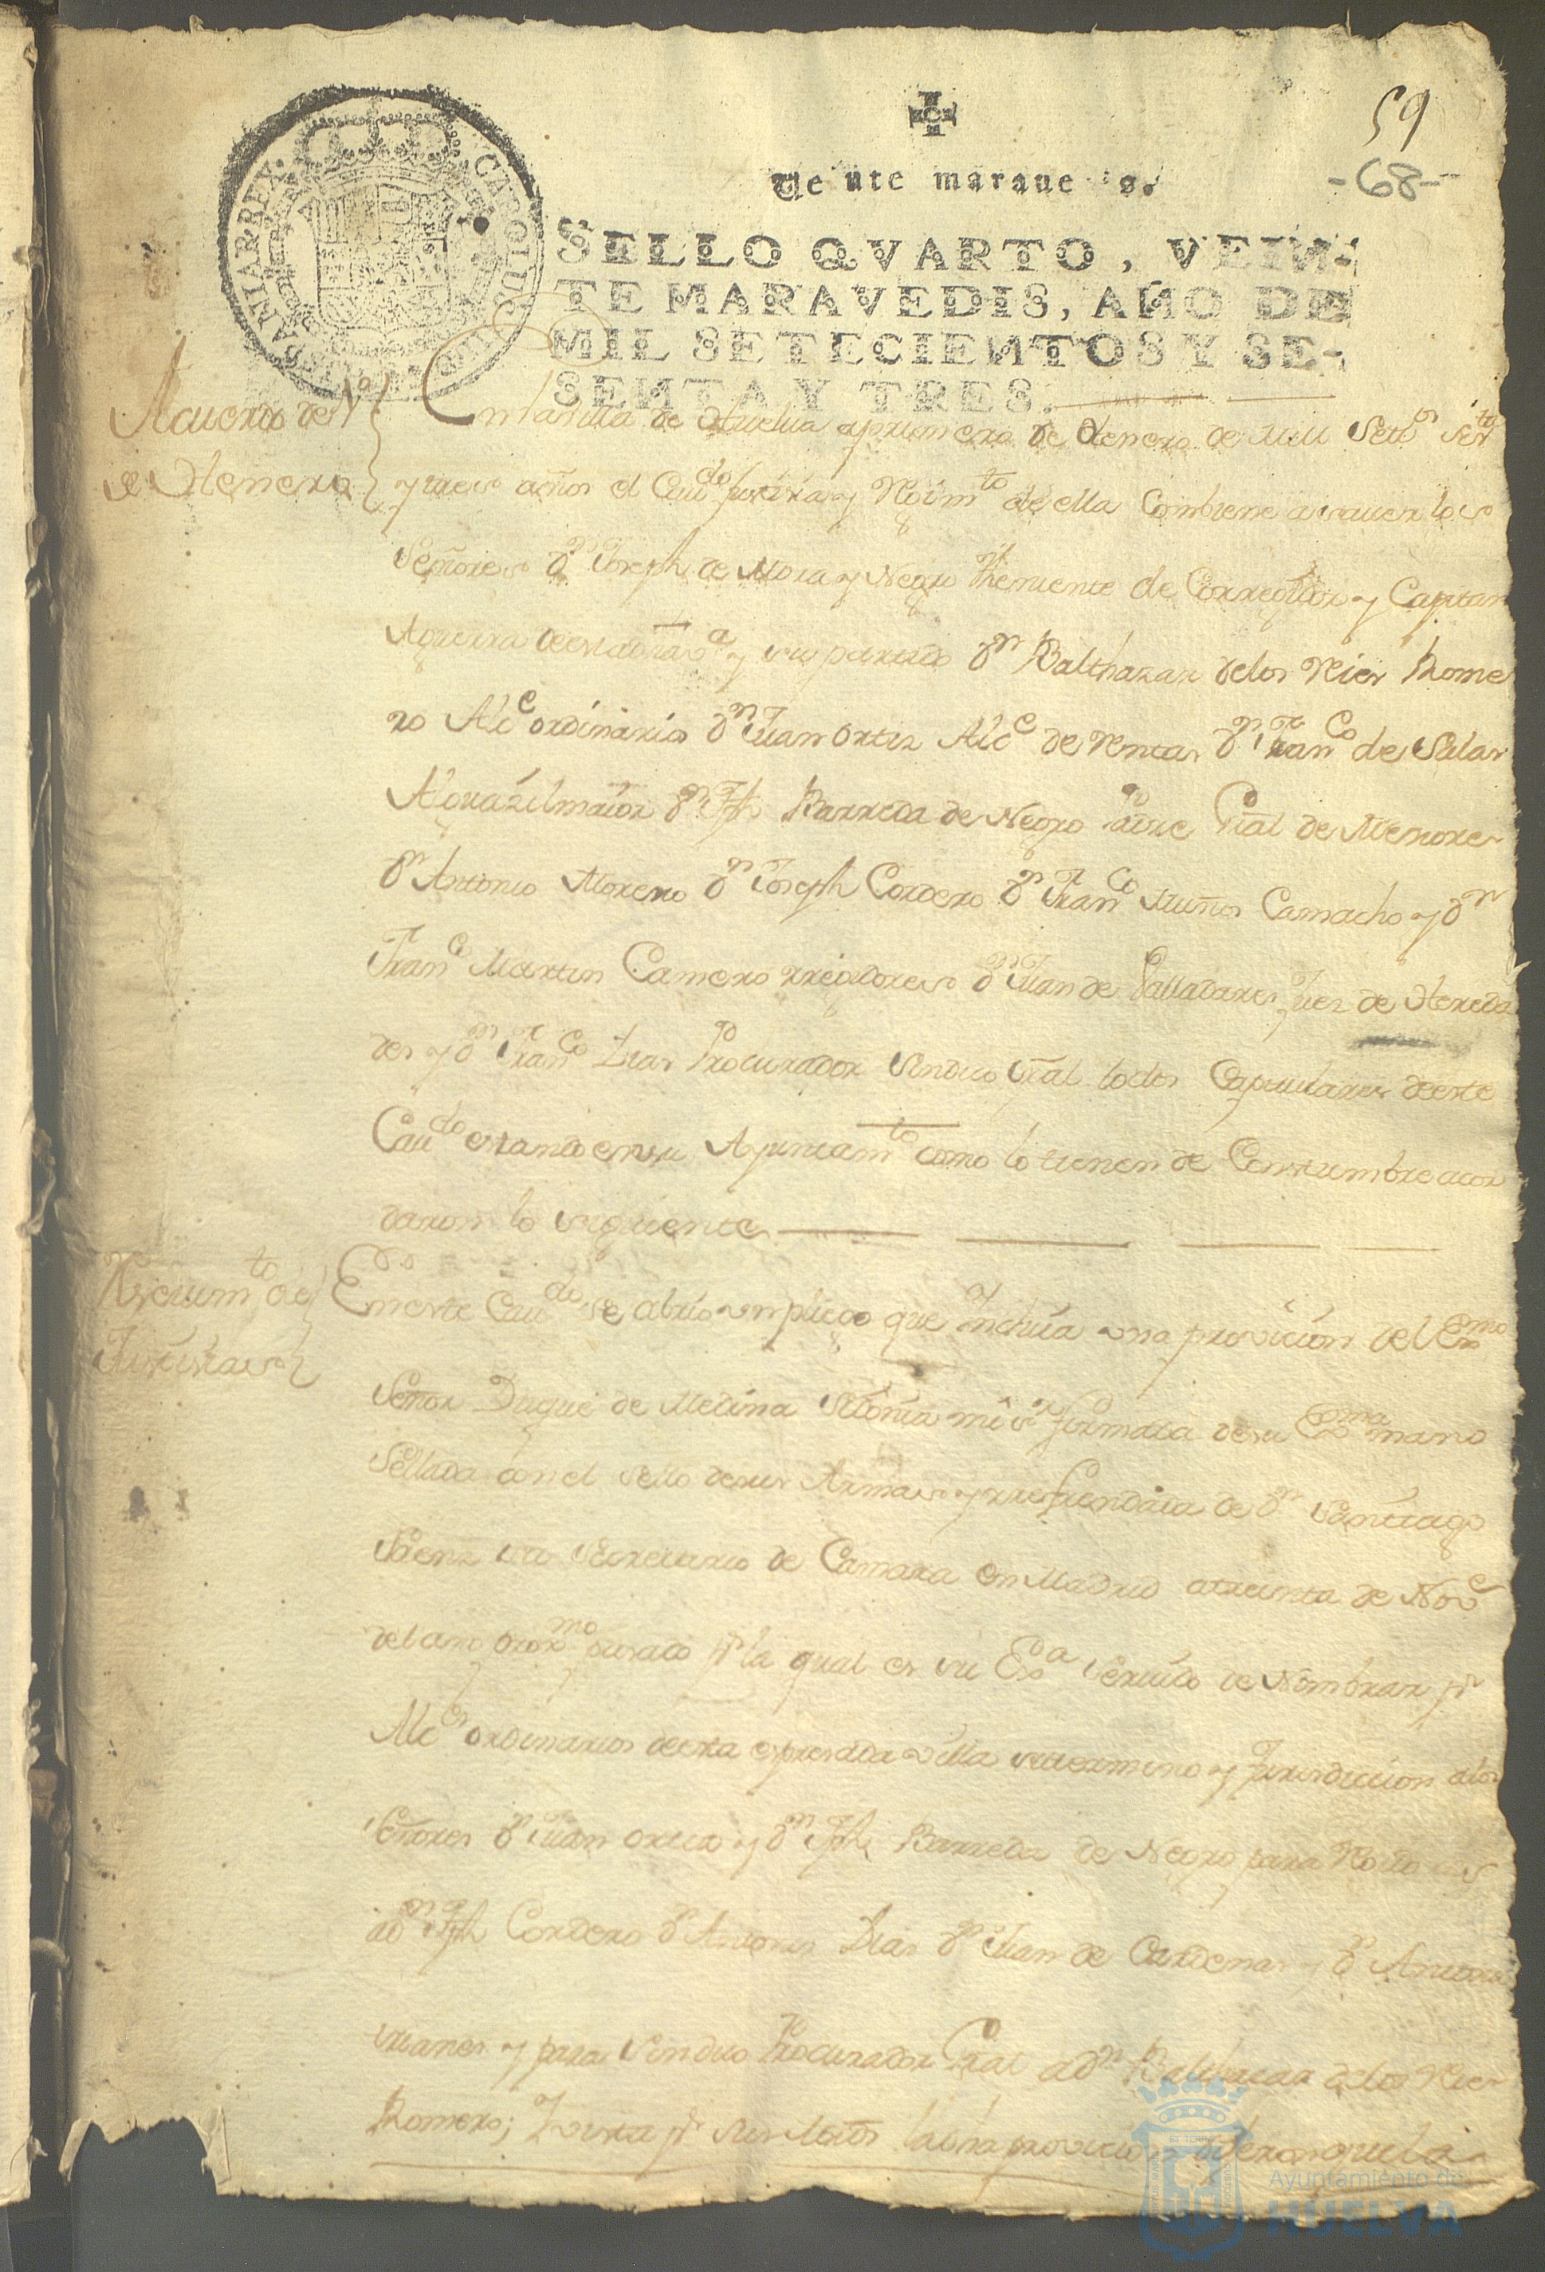 59
-68-
Veinte maravedis.
SELLO QVARTO, VEIN-
TE MARAVEDIS, AÑO DE
MIL SETECIENTOS Y SE-
SENTA Y TRES.
CAROLUS HISPANIAR REX
Acuerdo de 1º
de Henero
En la villa de Huelva a primero de Henero de mill Settos
y tres años el Cavdo Justizia y Rexímto de ella Combiene a saver los
Señores Dn Joseph de Mora y Negro Theniente de Corregidor y Capitan
Aguerra de esta dha va y su partido Dn Balthazar delos Reies Rome
ro Alce ordinario Dn Juan Ortiz Alce de Rentas Dn Franco de Salas
Alguazil maior Dn Jph Barreda de Negro Padre Gral de Menores
Dn Antonio Moreno Dn Joseph Cordero Dn Franco Muños Camacho y Dn
Franco Martin Camero rrexidores Dn Juan de Valladares Juez de Hereda
des y Dn Franco Dias Procurador Sindico Gral todos Capitulares de este
Cavdo estando en su Ayuntamto como lo tienen de Constumbre acor
daron lo siguiente
Rscivimto de
Justizias
En este Cavdo se abrio un pliego que Incluía una provicion del Exmo
Señor Duque de Medina Sidonia mi sr firmada de su Exma mano
Sellada con el sello de sus Armas y rrefrendada de Dn Santiago
Saenz su Secretario de Camara en Madrid a treinta de Nove
del año proxmo pasado pr la qual es su Exa Servido de Nombrar pr
Alces ordinarios de esta expresada villa su termino y Jurisdiccion a los
Señores Dn Juan Ortiz y Dn Jph Barreda de Negro para
a Dn Jph Cordero Dn Antonio Dias Dn Juan de Cardenas y Dn Antonio
y para Sindico Procurador Gral a Dn Balthazar delos Reies
Romero; Y vista pr sus la dha provicion
Ayuntamiento de
HUELVA